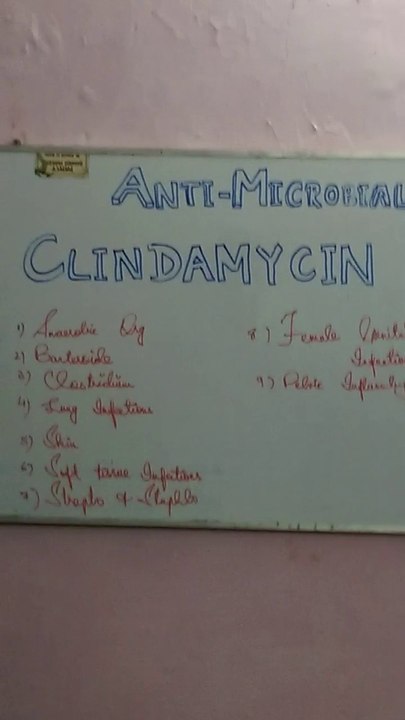 ANTI-MICROBIAL
CLINDAMYCIN
1) Anaerobic Org
2) Bacteroide
3) Clostridium
4) Lung Infections
5) Skin
6) Soft tissue Infections
7) Strepto & Staphlo
8) Female Genital
Infection
9) Pelvic Inflammatory